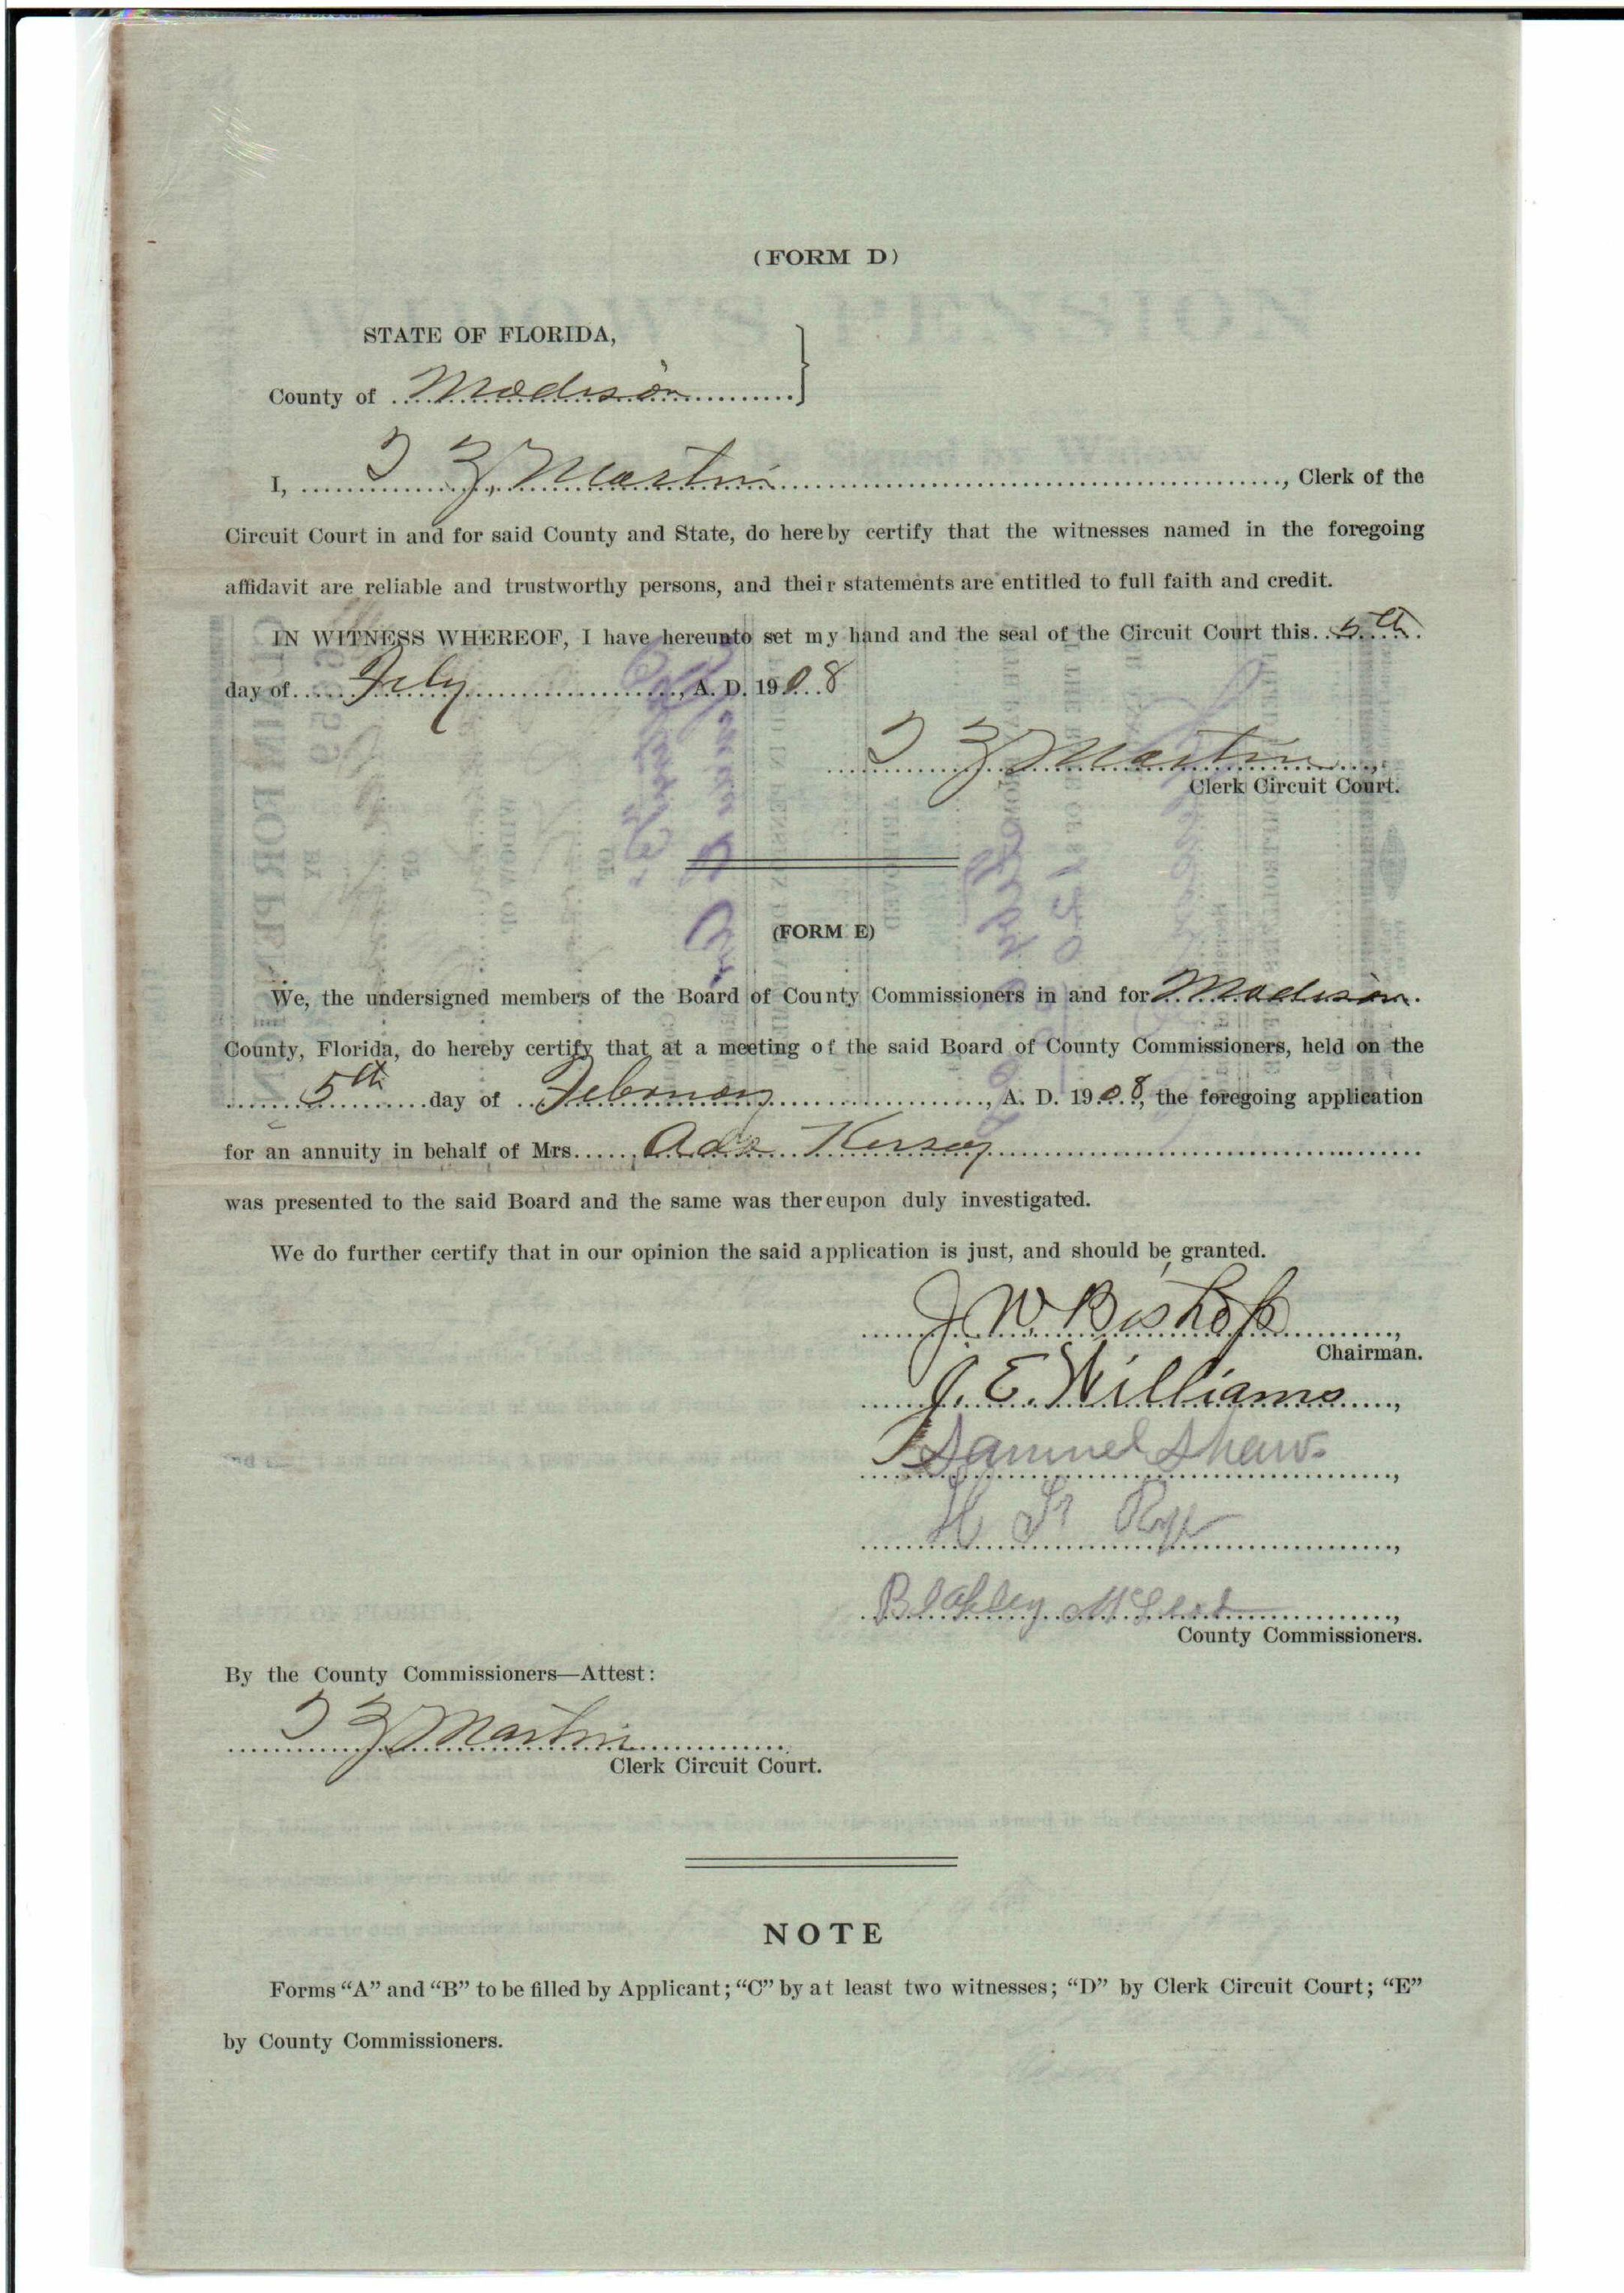 (FORM D)
STATE OF FLORIDA,
County of Madison
I, T Z Martin, Clerk of the
Circuit Court in and for said County and State, do hereby certify that the witnesses named in the foregoing
affidavit are reliable and trustworthy persons, and their statements are entitled to full faith and credit.
IN WITNESS WHEREOF, I have hereunto set my hand and the seal of the Circuit Court this 5th
day of Feby, A. D. 1908
T Z Martin,
Clerk Circuit Court.
(FORM E)
We, the undersigned members of the Board of County Commissioners in and for Madison
County, Florida, do hereby certify that at a meeting of the said Board of County Commissioners, held on the
5th day of February, A. D. 1908, the foregoing application
for an annuity in behalf of Mrs. Ada Kersey
was presented to the said Board and the same was thereupon duly investigated.
We do further certify that in our opinion the said application is just, and should be granted.
J. W. Bishop,
Chairman.
J. E. Williams,
Samuel Shaw,
H
Blakley McLeod,
County Commissioners.
By the County Commissioners—Attest:
T Z Martin
Clerk Circuit Court.
NOTE
Forms “A” and “B” to be filled by Applicant; “C” by at least two witnesses; “D” by Clerk Circuit Court; “E”
by County Commissioners.